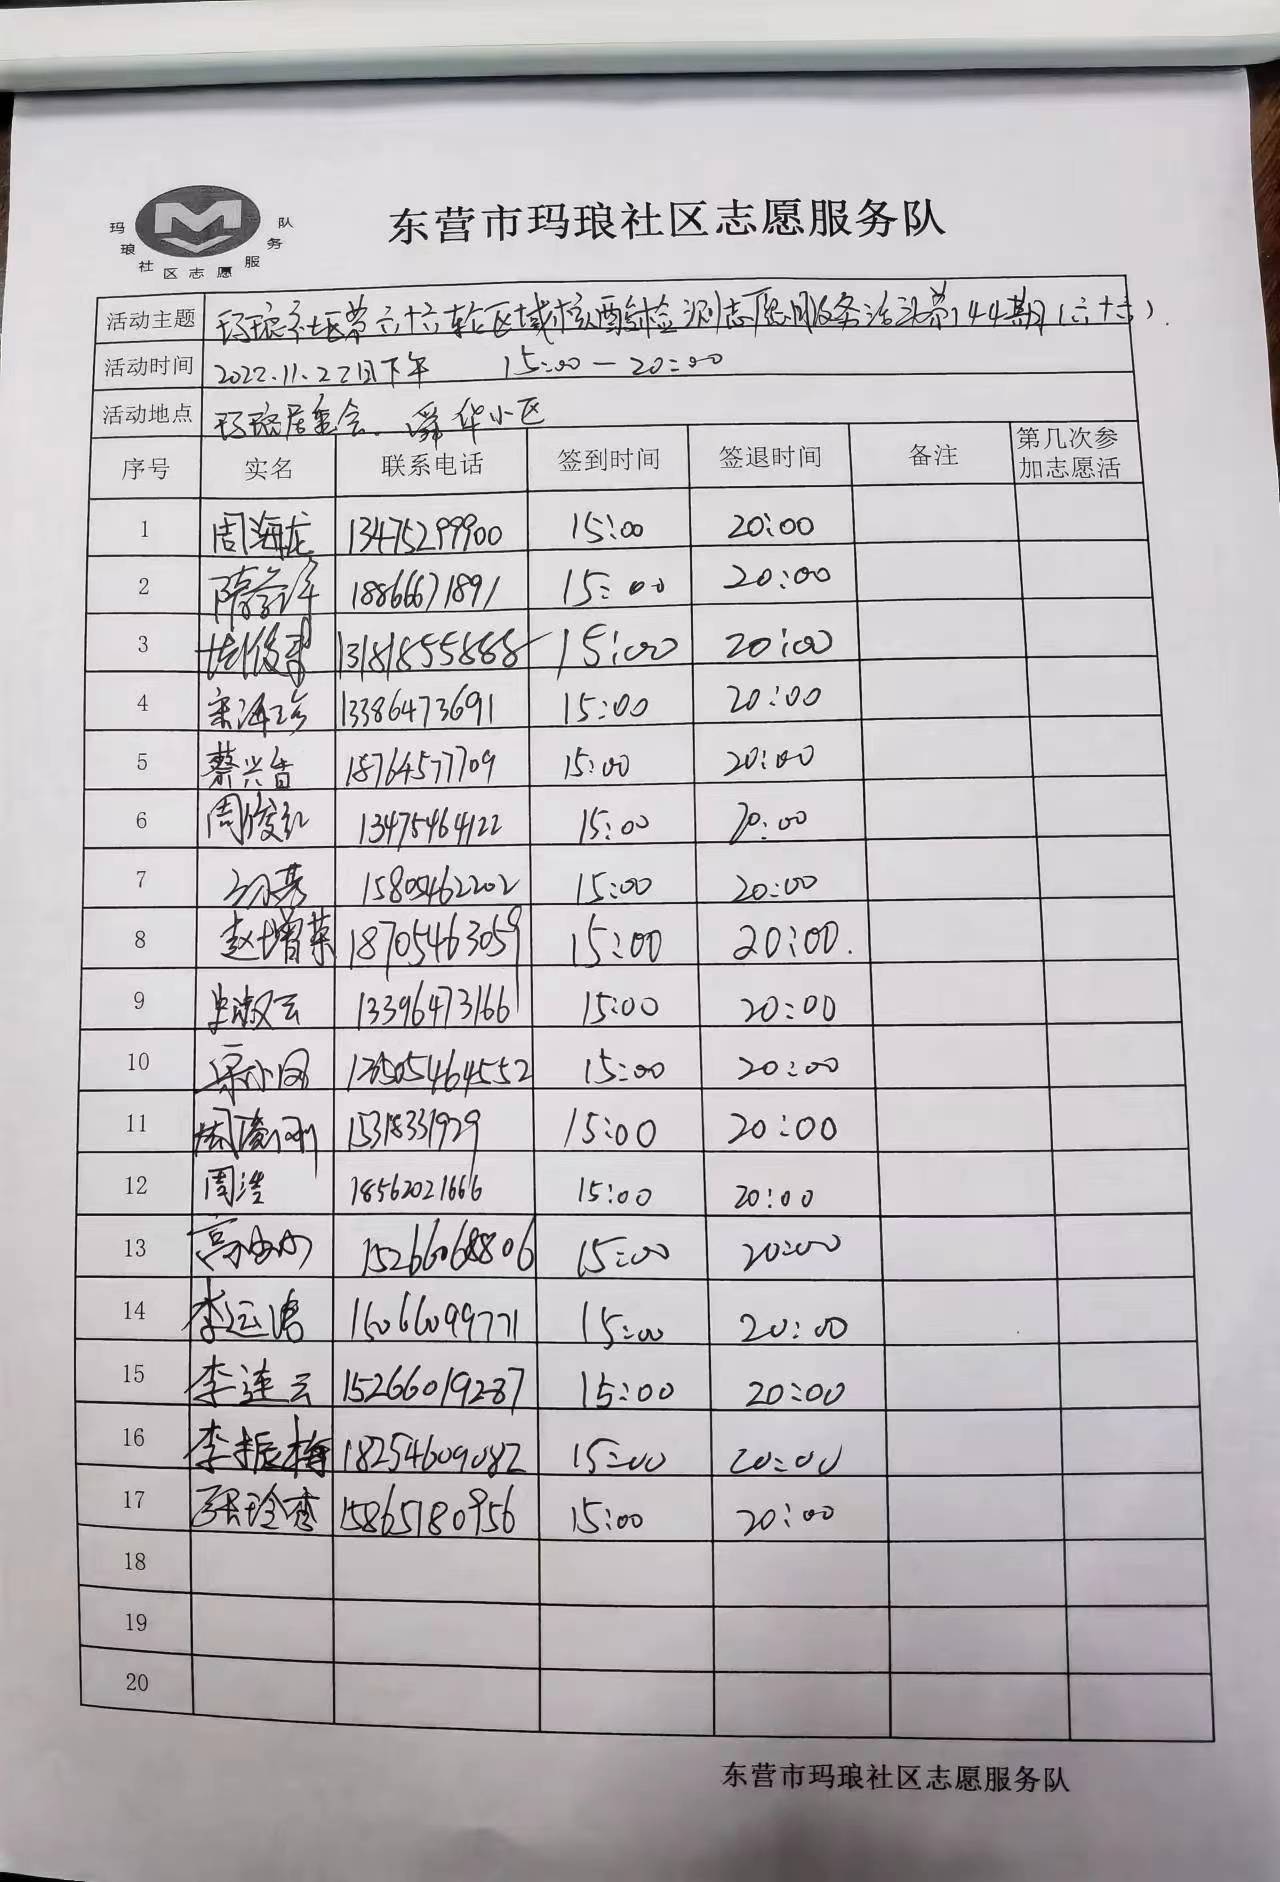 玛琅社区志愿服务队
东营市玛琅社区志愿服务队
活动主题 玛琅社区第六十六轮区域核酸检测志愿服务活动第144期(六十六)
活动时间 2022.11.22日下午 15:00—20:00
活动地点 玛琅居委会、舜华小区
序号 实名 联系电话 签到时间 签退时间 备注 第几次参加志愿活
1 周海龙 13475299900 15:00 20:00
2 18866671891 15:00 20:00
3 13181855888 15:00 20:00
4 宋海珍 13386473691 15:00 20:00
5 蔡兴香 18764577709 15:00 20:00
6 周俊红 13475464122 15:00 20:00
7 15805462202 15:00 20:00
8 赵增荣 18705463059 15:00 20:00.
9 史淑云 13396473166 15:00 20:00
10 15:00 20:00
11 15318331929 15:00 20:00
12 周滢 18562021666 15:00 20:00
13 15266068806 15:00 20:00
14 李运涛 15066099771 15:00 20:00
15 李连云 15266019287 15:00 20:00
16 李振梅 18254609082 15:00 20:00
17 张玲香 15865180956 15:00 20:00
18
19
20
东营市玛琅社区志愿服务队